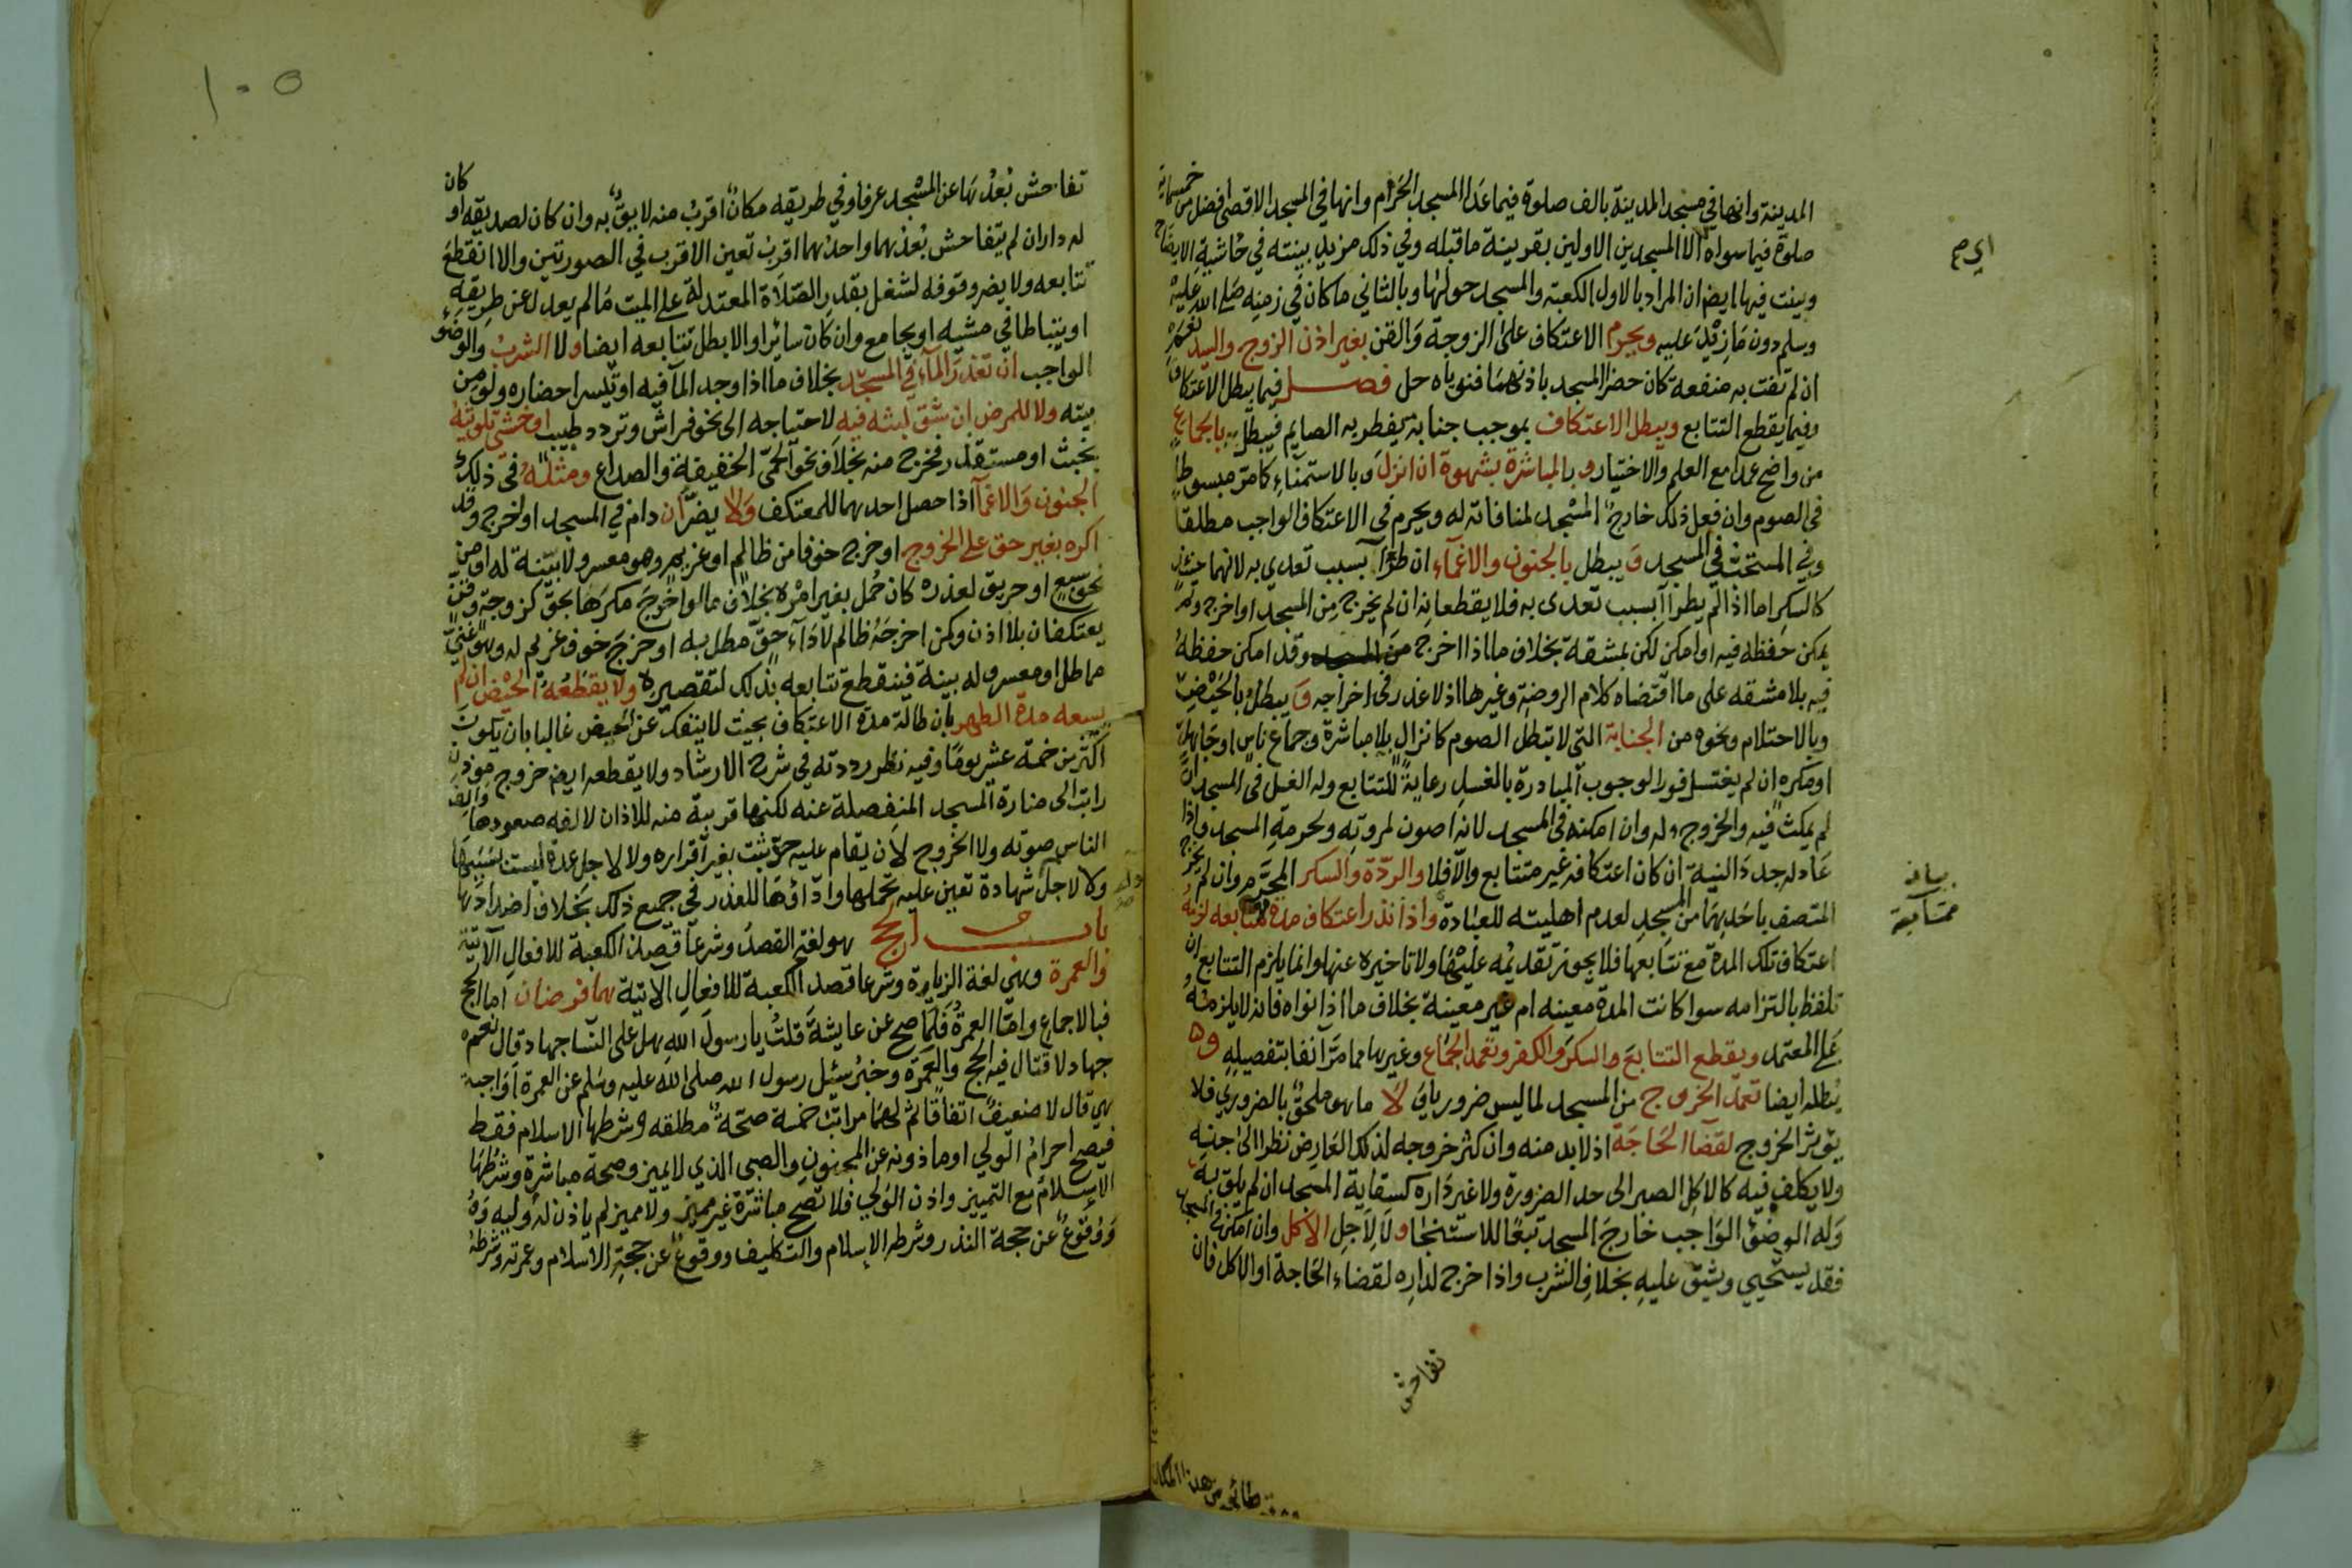 المدينة وانها في مسجد المدينة بالف صلوة فيما عدا المسجد الحرام وانها في المسجد الاقصى افضل من خمسمائة
صلوة فيما سواه الا المسجدين الاولين بقرينة ما قبله وفي ذلك مزيد بينته في حاشية الايضاح
وبينت فيها ايضا ان المراد بالاول الكعبة والمسجد حولها وبالثاني ما كان في زمنه صلى الله عليه
وسلم دون ما زيد عليه ويحرم الاعتكاف على الزوجة والقن بغير اذن الزوج والسيد نعم
ان لم تفت به منفعة كان حضر المسجد باذنهما فنوياه حل فصل فيما يبطل الاعتكاف
وفيما يقطع التتابع ويبطل الاعتكاف بموجب جنابة يفطر به الصايم فيبطل بالجماع
من واضح عمدا مع العلم والاختيار وبالمباشرة بشهوة ان انزل وبالاستمناء كما مر مبسوطا
في الصوم وان فعل ذلك خارج المسجد لمنافاته له ويحرم في الاعتكاف الواجب مطلقا
وفي المستحب في المسجد ويبطل بالجنون والاغماء ان طرأ بسبب تعدي به لانهما حينئذ
كالسكر اما اذا لم يطرأ بسبب تعدى به فلا يقطعانه ان لم يخرج من المسجد او اخرج ولم
يمكن حفظه فيه او امكن لكن بمشقة بخلاف ما اذا اخرج من المسجد وقد امكن حفظه
فيه بلا مشقه على ما اقتضاه كلام الروضة وغيرها اذ لا عذر في اخراجه ويبطل بالحيض
وبالاحتلام ونحوه من الجنابة التي لا تبطل الصوم كانزال بلا مباشرة وجماع ناس او جاهل
او مكره ان لم يغتسل فورا لوجوب المبادرة بالغسل رعاية للتتابع وله الغسل في المسجد ان
لم يمكث فيه والخروج له وان امكنه في المسجد لانه اصون لمروته ولحرمة المسجد واذا
عاد له جدد النية ان كان اعتكافه غير متتابع والا فلا والردة والسكر المحرم وان لم يخرج
المتصف باحدهما من المسجد لعدم اهليته للعبادة واذا نذر اعتكاف مدة متتابعه لزمه
اعتكاف تلك المدة مع تتابعها فلا يجوز تقديمه عليها ولا تاخيره عنها وانما يلزم التتابع ان
تلفظ بالتزامه سوا كانت المدة معينه ام غير معينة بخلاف ما اذا نواه فانه لا يلزمه
على المعتمد ويقطع التتابع والسكر والكفر وتعمد الجماع وغيرها مما مر آنفا بتفصيله و
يبطله ايضا تعمد الخروج من المسجد لما ليس ضروريا لا ما هو ملحق بالضروري فلا
يؤثر الخروج لقضا الحاجة اذ لا بد منه وان كثر خروجه لذلك العارض نظرا الى جنسه
ولا يكلف فيه كالاكل الصبر الى حد الضرورة ولا غير داره كسقاية المسجد ان لم يلق به
وله الوضوء الواجب خارج المسجد تبعا للاستنجا ولا لاجل الاكل وان امكن في المسجد
فقد يستحيي ويشق عليه بخلاف الشرب واذا خرج لداره لقضاء الحاجة او الاكل فان
تفاحش
بيانه
متتابعة
١٠٥
تفاحش بعدها عن المسجد عرفا وفي طريقه مكان اقرب منه لايق به وان كان لصديقه او كان
له داران لم يتفاحش بعدهما واحدهما اقرب تعين الاقرب في الصورتين والا انقطع
تتابعه ولا يضر وقوفه لشغل بقدر الصلاة المعتدلة على الميت ما لم يعدل عن طريقه
او يتباطا في مشيه او يجامع وان كان سائرا والا بطل تتابعه ايضا ولا الشرب والوضوء
الواجب ان تعذر الماء في المسجد بخلاف ما اذا وجد الماء فيه او تيسر احضاره ولو من
بيته ولا للمرض ان شق لبثه فيه لاحتياجه الى نحو فراش وتردد طبيب او خشي تلويثه
بخبث او مستقذر فخرج منه بخلاف نحو الحمى الخفيفة والصداع ومثله في ذلك
الجنون والاغما اذا حصل احدهما للمعتكف ولا يضر ان دام في المسجد او اخرج وقد
اكره بغير حق على الخروج او خرج خوفا من ظالم او غريم وهو معسر ولا بينة له او من
نحو سبع او حريق لعذره كان حمل بغير امره بخلاف ما لو اخرج مكرها بحق كزوجة وقن
يعتكفان بلا اذن وكمن اخرجه ظالم لاداء حق مطل به او خرج خوف غريم له وهو غني
مماطل او معسر وله بينة فينقطع تتابعه بذلك لتقصيره ولا يقطعه الحيض ان لم
يسعه مدة الطهر بان طالة مدة الاعتكاف بحيث لا ينفك عن الحيض غالبا بان يكون
اكثر من خمسة عشر يوما وفيه نظر رددته في شرح الارشاد ولا يقطعه ايضا خروج موذن
راتب الى منارة المسجد المنفصلة عنه لكنها قريبة منه للاذان لالفه صعودها والف
الناس صوته ولا الخروج لان يقام عليه حد ثبت بغير اقراره ولا لاجل عدة ليست بسببها
ولا لاجل شهادة تعين عليه تحملها واداؤها للعذر في جميع ذلك بخلاف اضدادها
باب الحج هو لغة القصد وشرعا قصد الكعبة للافعال الآتية
والعمرة وهي لغة الزيارة وشرعا قصد الكعبة للافعال الاتية هما فرضان اما الحج
فبالاجماع واما العمرة فلما صح عن عايشة قلت يا رسول الله هل على النسا جهاد قال نعم
جهاد لا قتال فيه الحج والعمرة وخبر سئل رسول الله صلى الله عليه وسلم عن العمرة اواجبة
هي قال لا ضعيف اتفاقا ثم لهما مراتب خمسة صحة مطلقه وشرطها الاسلام فقط
فيصح احرام الولي او ماذونه عن المجنون والصبي الذي لا يميز وصحة مباشرة وشرطها
الاسلام مع التمييز واذن الولي فلا تصح مباشرة غير مميز ولا مميز لم ياذن له وليه و
ووقوع عن حجة النذر وشرطه الاسلام والتكليف ووقوع عن حجة الاسلام وعمرته وشرطه